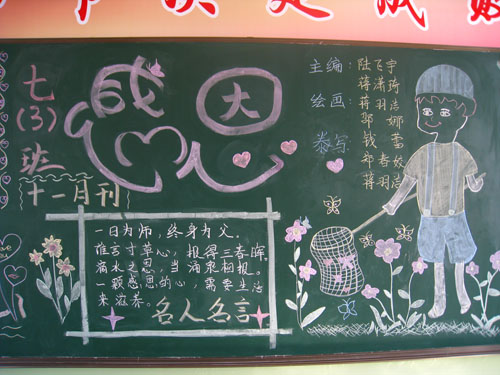 七
(3)
班
十一月刊
感
恩
心
主编：陆飞宇
蒋潇琦
绘画：蒋羽洁
邵娜
钱蕾
郑春姣
蒋羽洁
一日为师，终身为父。
谁言寸草心，报得三春晖。
滴水之恩，当涌泉相报。
一颗感恩的心，需要生活
来滋养。
名人名言